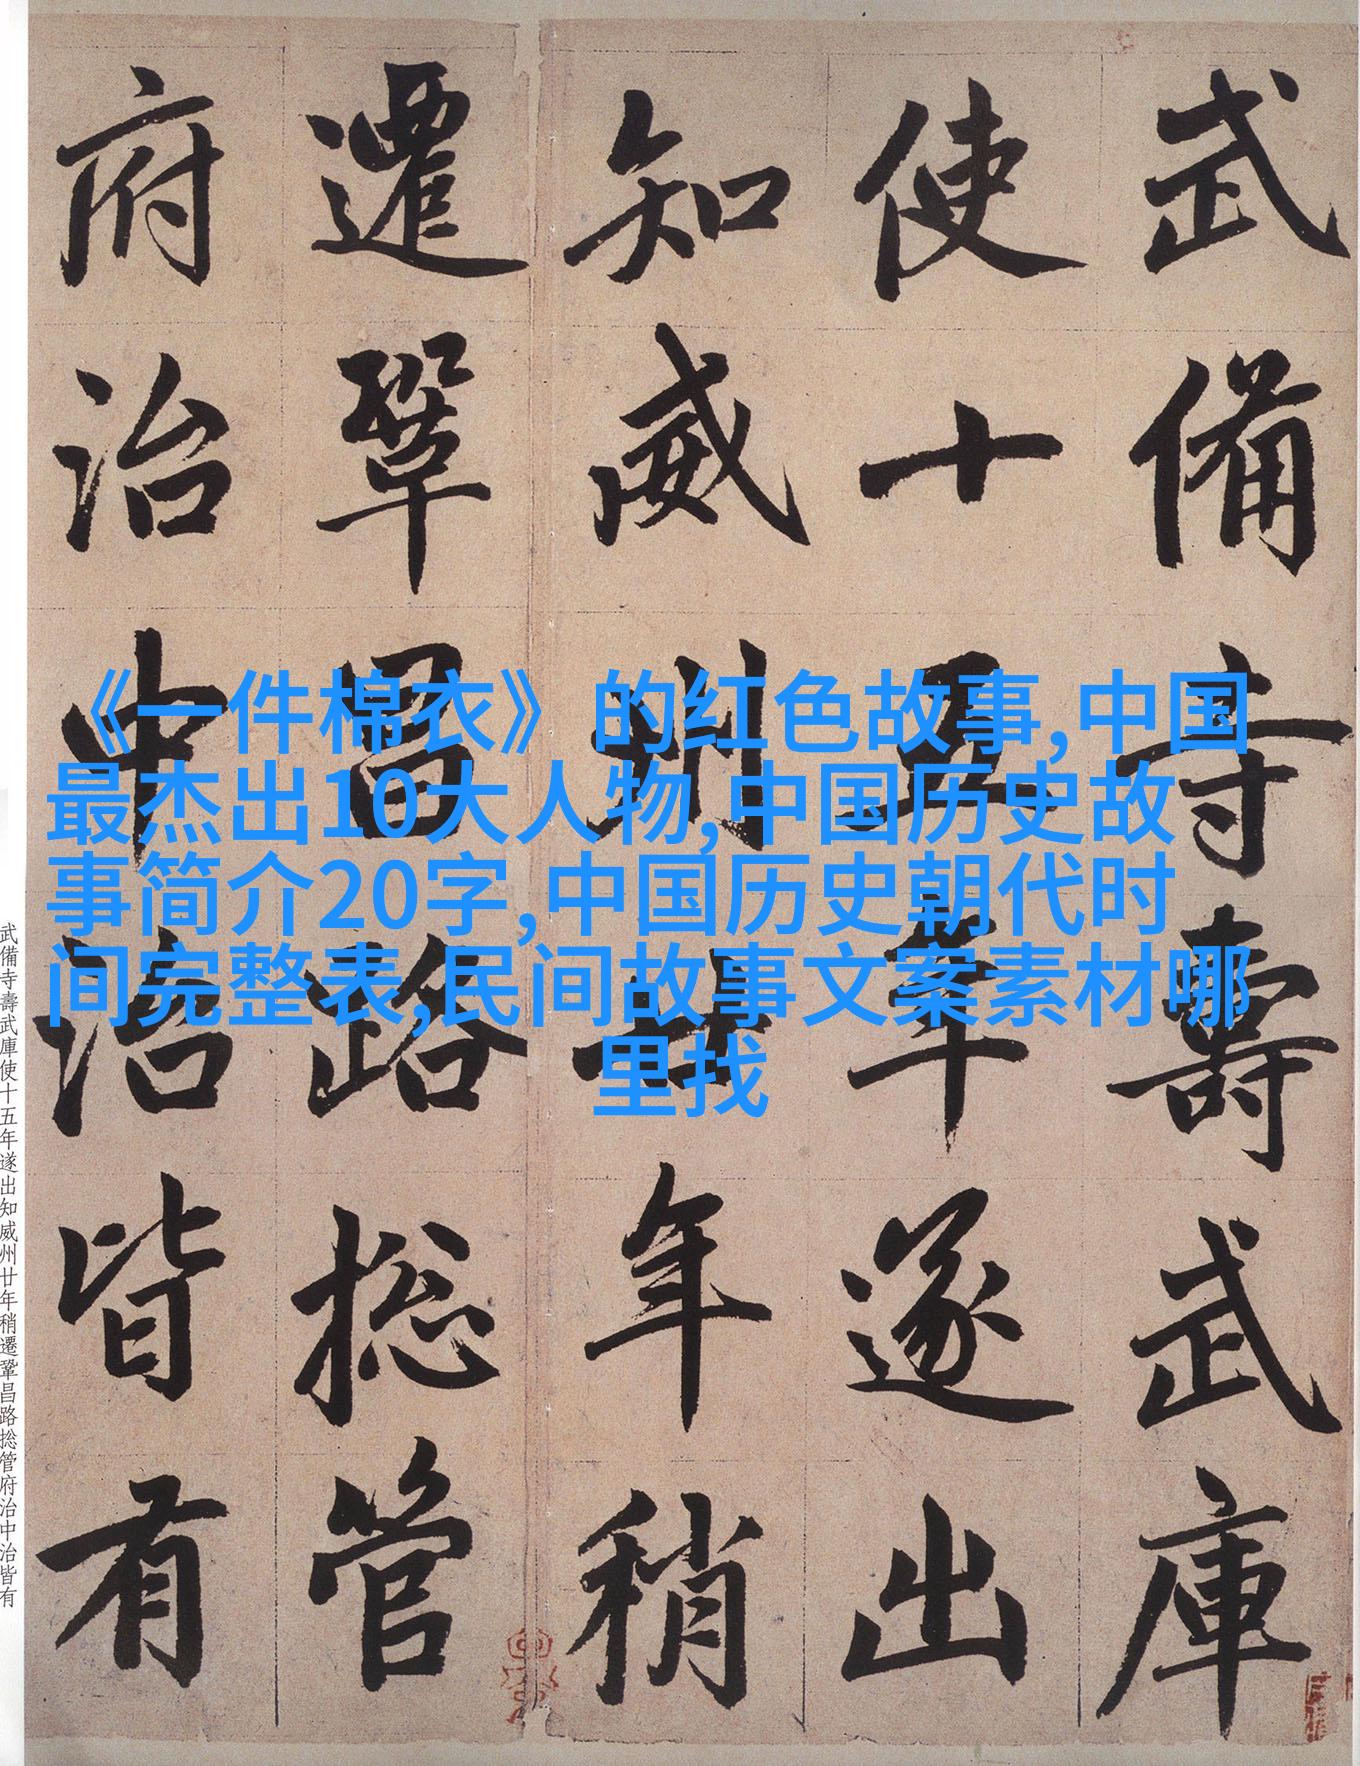 武備寺壽武庫
使十五年遂出
知威州廿年稍
遷鞏昌路捴管
府治中治皆有
《一件棉衣》的红色故事,中国
最杰出10大人物,中国历史故
事简介20字,中国历史朝代时
间完整表,民间故事文案素材哪
里找
武備寺壽武庫使十五年遂出知威州廿年稍遷鞏昌路捴管府治中治皆有